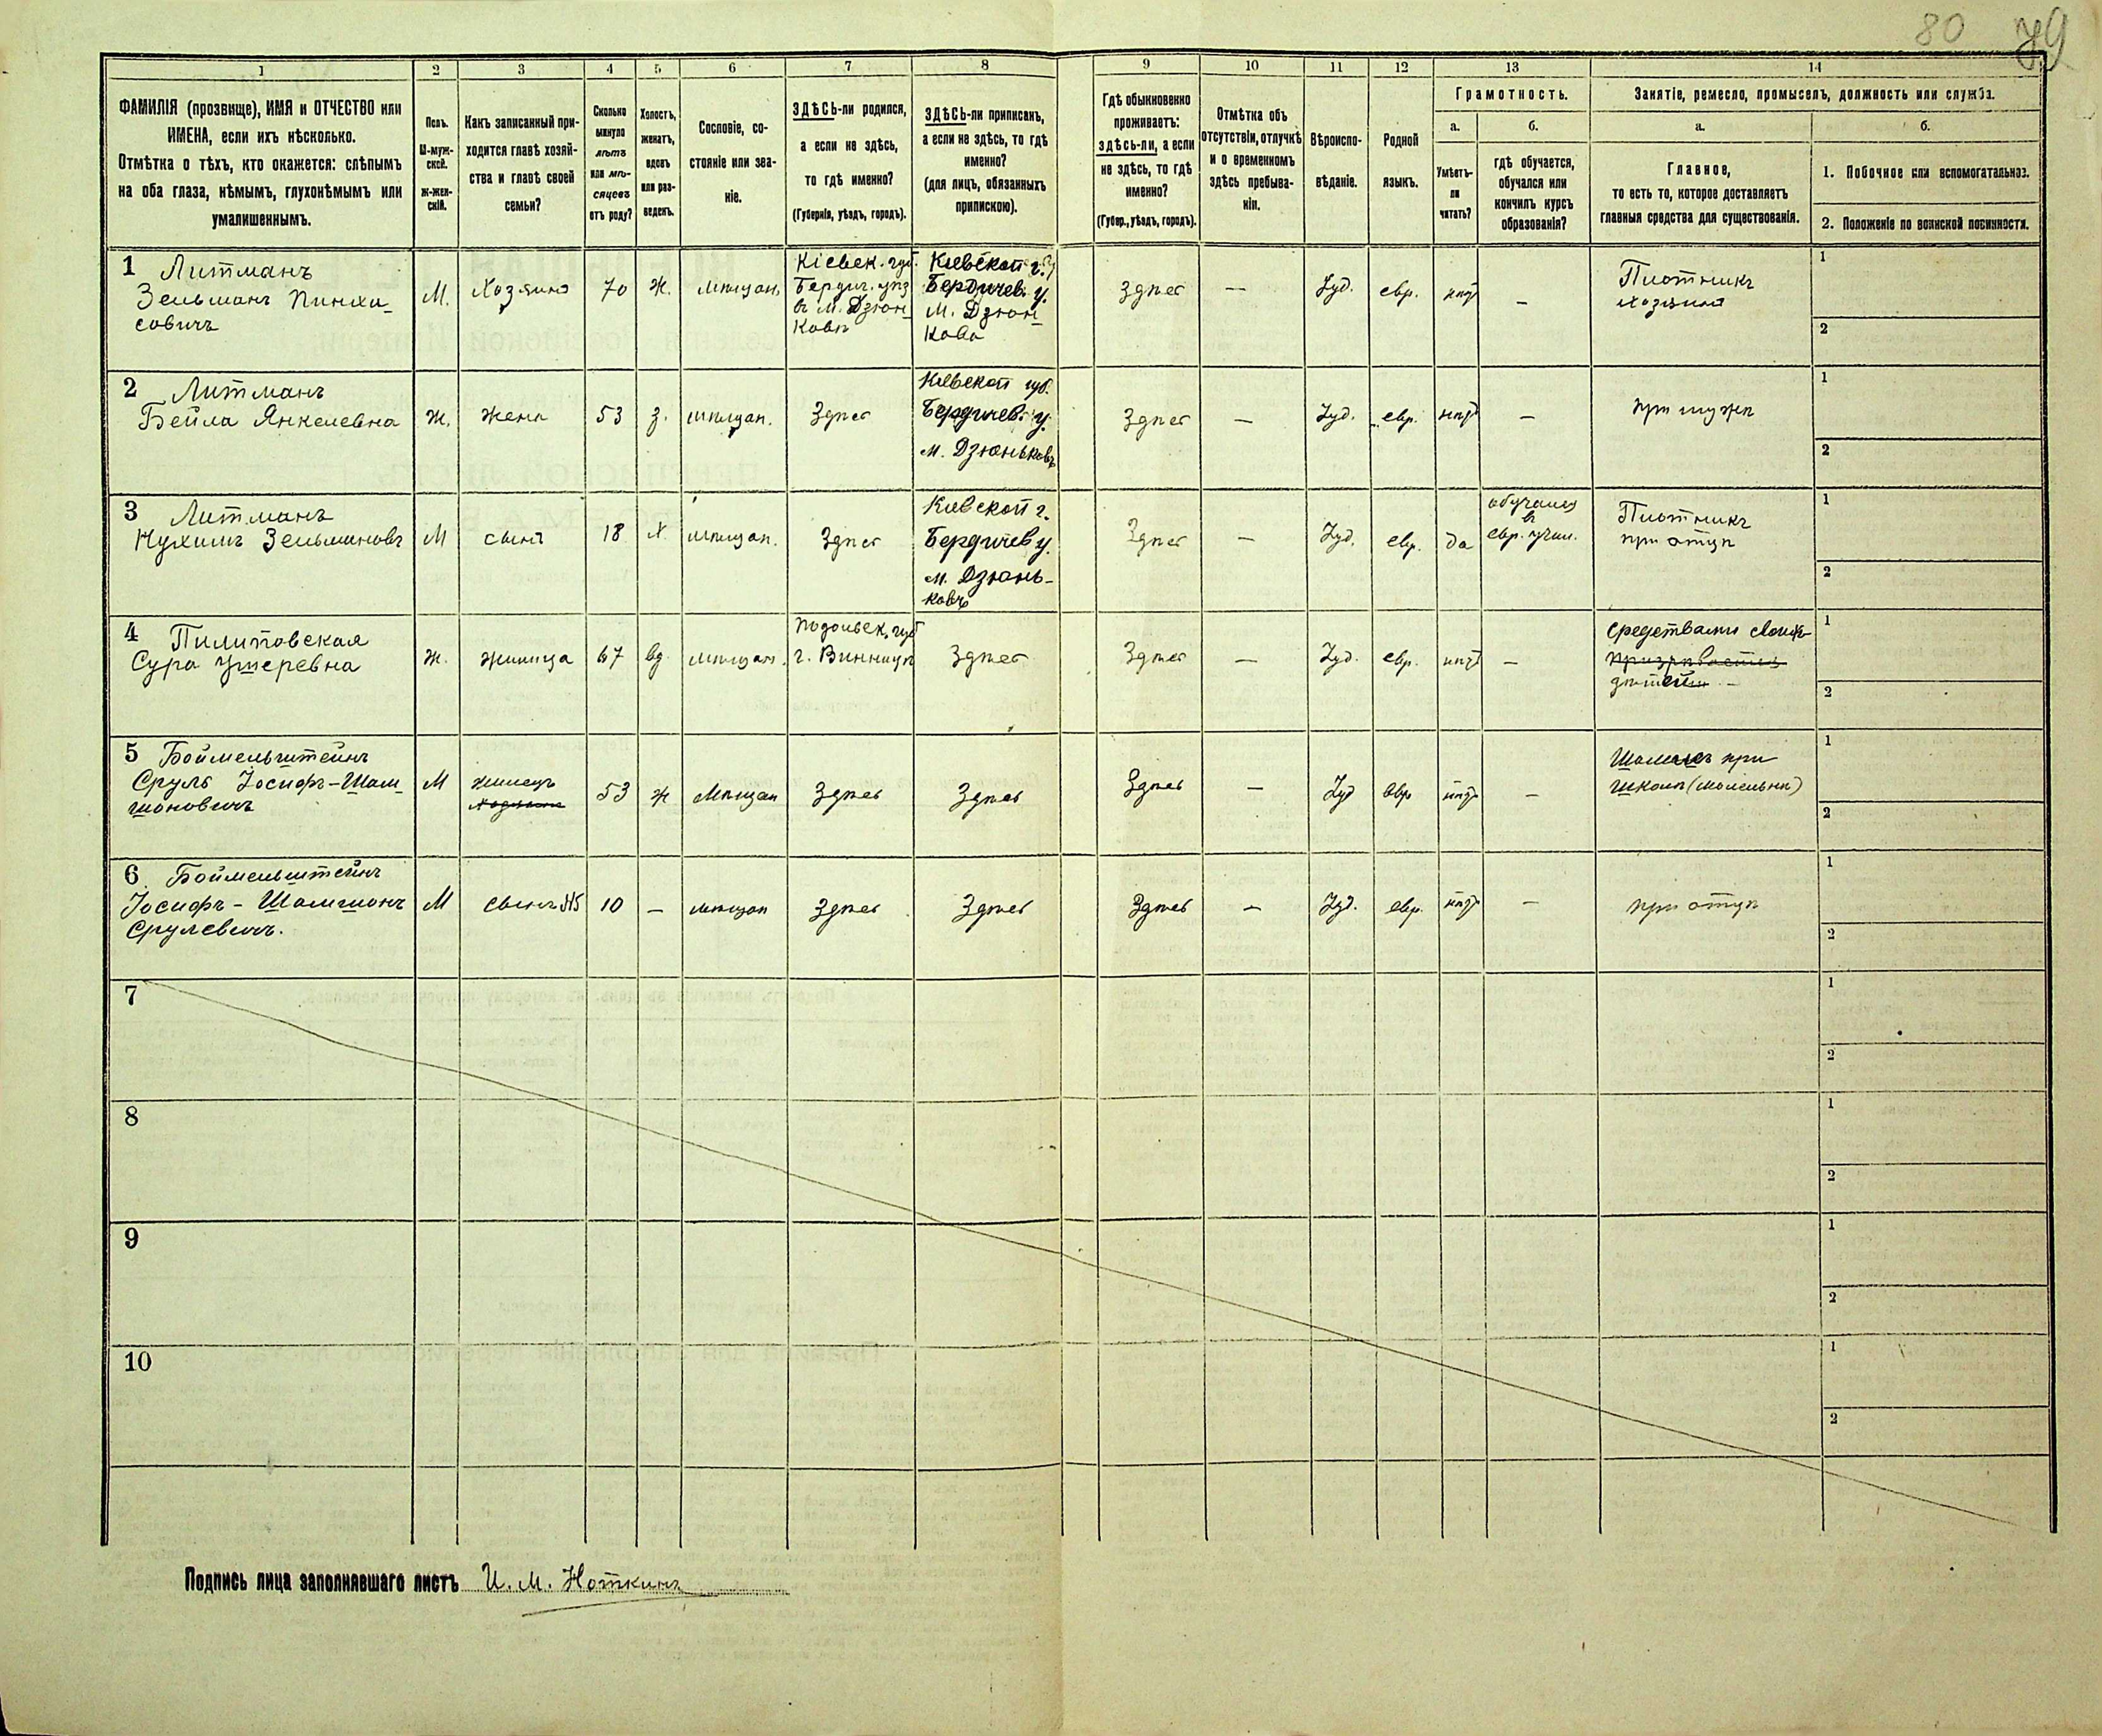 80 79
1 2 3 4 5 6 7 8 9 10 11 12 13 14
ФАМИЛІЯ (прозвище), ИМЯ и ОТЧЕСТВО или
ИМЕНА, если ихъ нѣсколько.
Отмѣтка о тѣхъ, кто окажется: слѣпымъ
на оба глаза, нѣмымъ, глухонѣмымъ или
умалишеннымъ.
Полъ.
М-муж-
ской.
ж-жен-
скій.
Какъ записанный при-
ходится главѣ хозяй-
ства и главѣ своей
семьи?
Сколько
минуло
лѣтъ
или мѣ-
сяцевъ
отъ роду?
Холостъ,
женатъ,
вдовъ
или раз-
веденъ.
Сословіе, со-
стояніе или зва-
ніе.
ЗДѢСЬ-ли родился,
а если не здѣсь,
то гдѣ именно?
(Губернія, уѣздъ, городъ).
ЗДѢСЬ-ли приписанъ,
а если не здѣсь, то гдѣ
именно?
(для лицъ, обязанныхъ
припискою).
Гдѣ обыкновенно
проживаетъ:
здѣсь-ли, а если
не здѣсь, то гдѣ
именно?
(Губер., уѣздъ, городъ).
Отмѣтка объ
отсутствіи, отлучкѣ
и о временномъ
здѣсь пребыва-
ніи.
Вѣроиспо-
вѣданіе.
Родной
языкъ.
Грамотность.
а.
Умѣетъ-
ли
читать?
б.
гдѣ обучается,
обучался или
кончилъ курсъ
образованія?
Занятіе, ремесло, промыселъ, должность или служба.
а.
Главное,
то есть то, которое доставляетъ
главныя средства для существованія.
б.
1. Побочное или вспомогательное.
2. Положеніе по воинской повинности.
1 Литманъ
Зельманъ Пинха-
совичъ
М.
Хозяинъ
70
Ж.
мѣщан.
Кіевск. губ.
Бердич. уѣз
въ м. Дзюн-
ковѣ
Кіевской г.
Бердичев. у.
м. Дзюн-
кова
Здѣсь
—
Іуд.
евр.
нѣтъ
—
Плотникъ
хозяинъ
1
2
2 Литманъ
Бейла Янкелевна
Ж.
жена
53
з.
мѣщан.
Здѣсь
Кіевской губ.
Бердичев. у.
м. Дзюньковъ
Здѣсь
—
Іуд.
евр.
нѣтъ
—
при мужѣ
1
2
3 Литманъ
Нухимъ Зельмановъ
М
сынъ
18
х
мѣщан.
Здѣсь
Кіевской г.
Бердичев у.
м. Дзюнь-
ковъ
Здѣсь
—
Іуд.
евр.
да
обучался
въ
евр. учил.
Плотникъ
при отцѣ
1
2
4 Пилитовская
Сура Ушеревна
Ж.
жилица
67
вд.
мѣщан.
Подольск. губ
г. Винницѣ
Здѣсь
Здѣсь
—
Іуд.
евр.
нѣтъ
—
Средствами своих
призрѣвается
дѣтей
1
2
5 Боймельштейнъ
Сруль Іосифъ-Шам-
шоновичъ
М
жилецъ
хозяинъ
53
ж
Мѣщан
Здѣсь
Здѣсь
Здѣсь
—
Іуд
евр
нѣтъ
—
Шамесъ при
школѣ (молельнѣ)
1
2
6 Боймельштейнъ
Іосифъ-Шамшонъ
Срулевичъ.
М
сынъ №5
10
—
мѣщан
Здѣсь
Здѣсь
Здѣсь
—
Іуд.
евр.
нѣтъ
—
при отцѣ
1
2
7
1
2
8
1
2
9
1
2
10
1
2
Подпись лица заполнявшаго листъ И. М. Ноткинъ